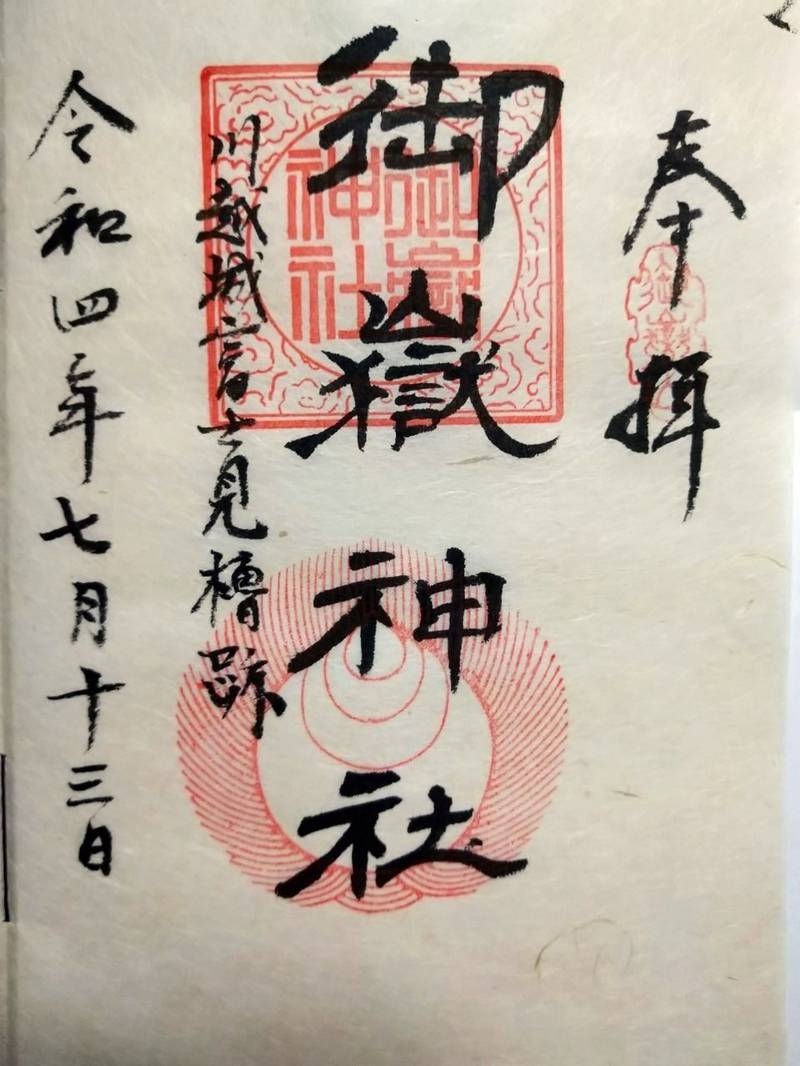 奉拝
御嶽神社
川越城富士見櫓跡
令和四年七月十三日
御嶽
神社